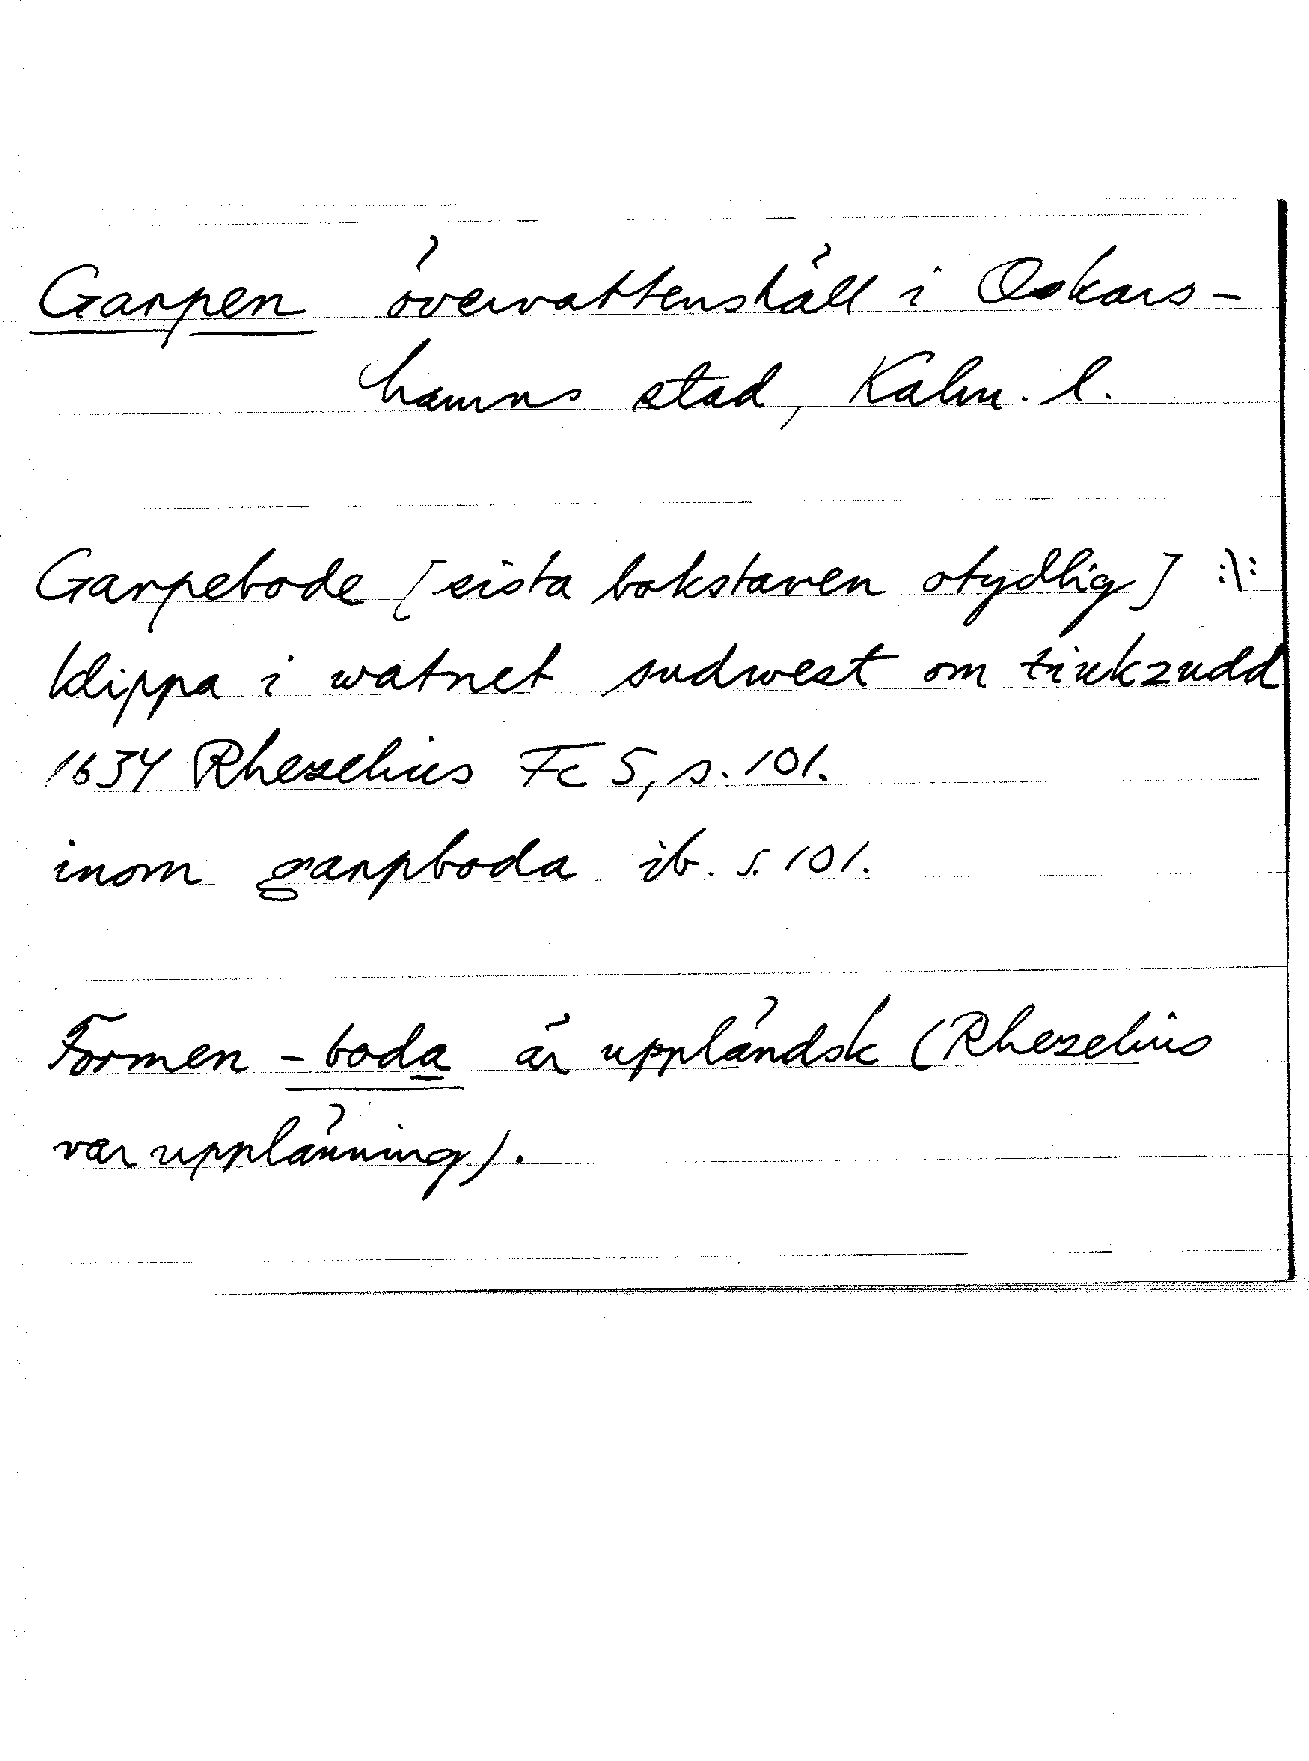 Garpen övervattenshäll i Oskars-
hamns stad, Kalm. l.
Garpebode [sista bokstaven otydlig] :\:
klippa i watnet sudwest om tiukzudd
1634 Rhezelius Fc 5, s. 101.
inom garpboda ib. s. 101.
Formen -boda är uppländsk (Rhezelius
var upplänning).